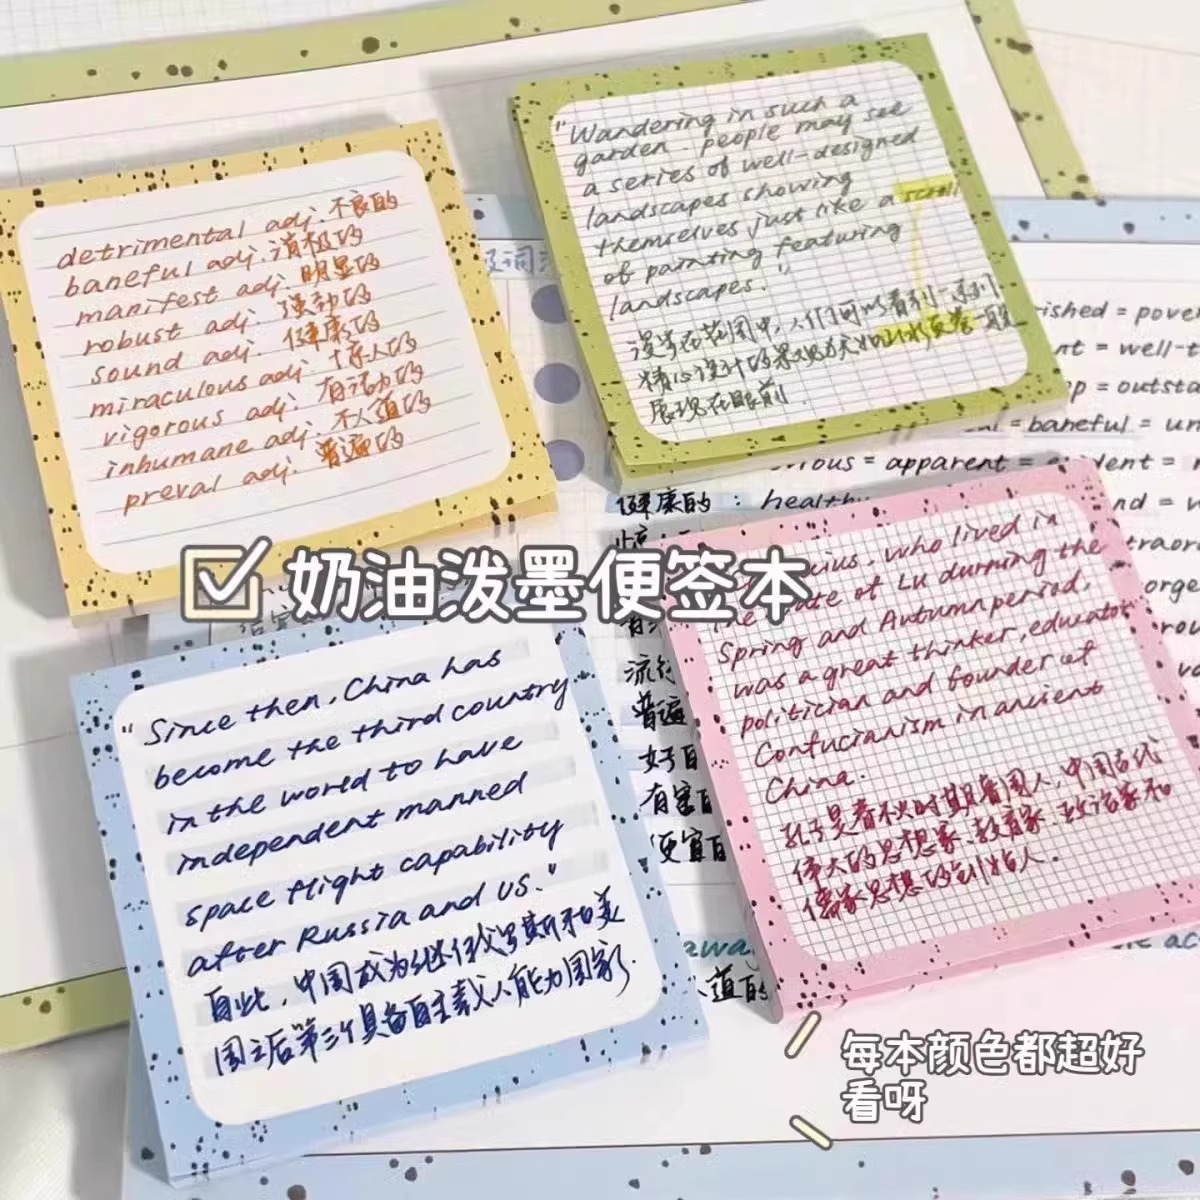 detrimental adj. 不良的
baneful adj. 消极的
manifest adj. 明显的
robust adj. 强劲的
sound adj. 健康的
miraculous adj. 惊人的
vigorous adj. 有活力的
inhumane adj. 不人道的
preval adj. 普遍的
"Wandering in such a
garden, people may see
a series of well-designed
landscapes showing
themselves just like a scroll
of painting featuring
landscapes."
漫步在花园中,人们可以看到一系列
精心设计的景观犹如山水画卷一般
展现在眼前.
ished = pover
nt = well-t
p = outsta
= baneful = un
ious = apparent = evident = m
健康的 : healthy
nd = v
traor
orge
rou
流行
普遍
好的
有害的
便宜的
人道的
☑奶油泼墨便签本
"Since then, China has
become the third country
in the world to have
independent manned
space flight capability
after Russia and US."
自此,中国成为继俄罗斯和美
国之后第三个具备自主载人能力国家.
cius, who lived in
the state of Lu durning the
Spring and Autumn period,
was a great thinker, educator
politician and founder of
Confucianism in ancient
China.
孔子是春秋时期鲁国人,中国古代
伟大的思想家、教育家、政治家和
儒家思想的创始人.
每本颜色都超好
看呀